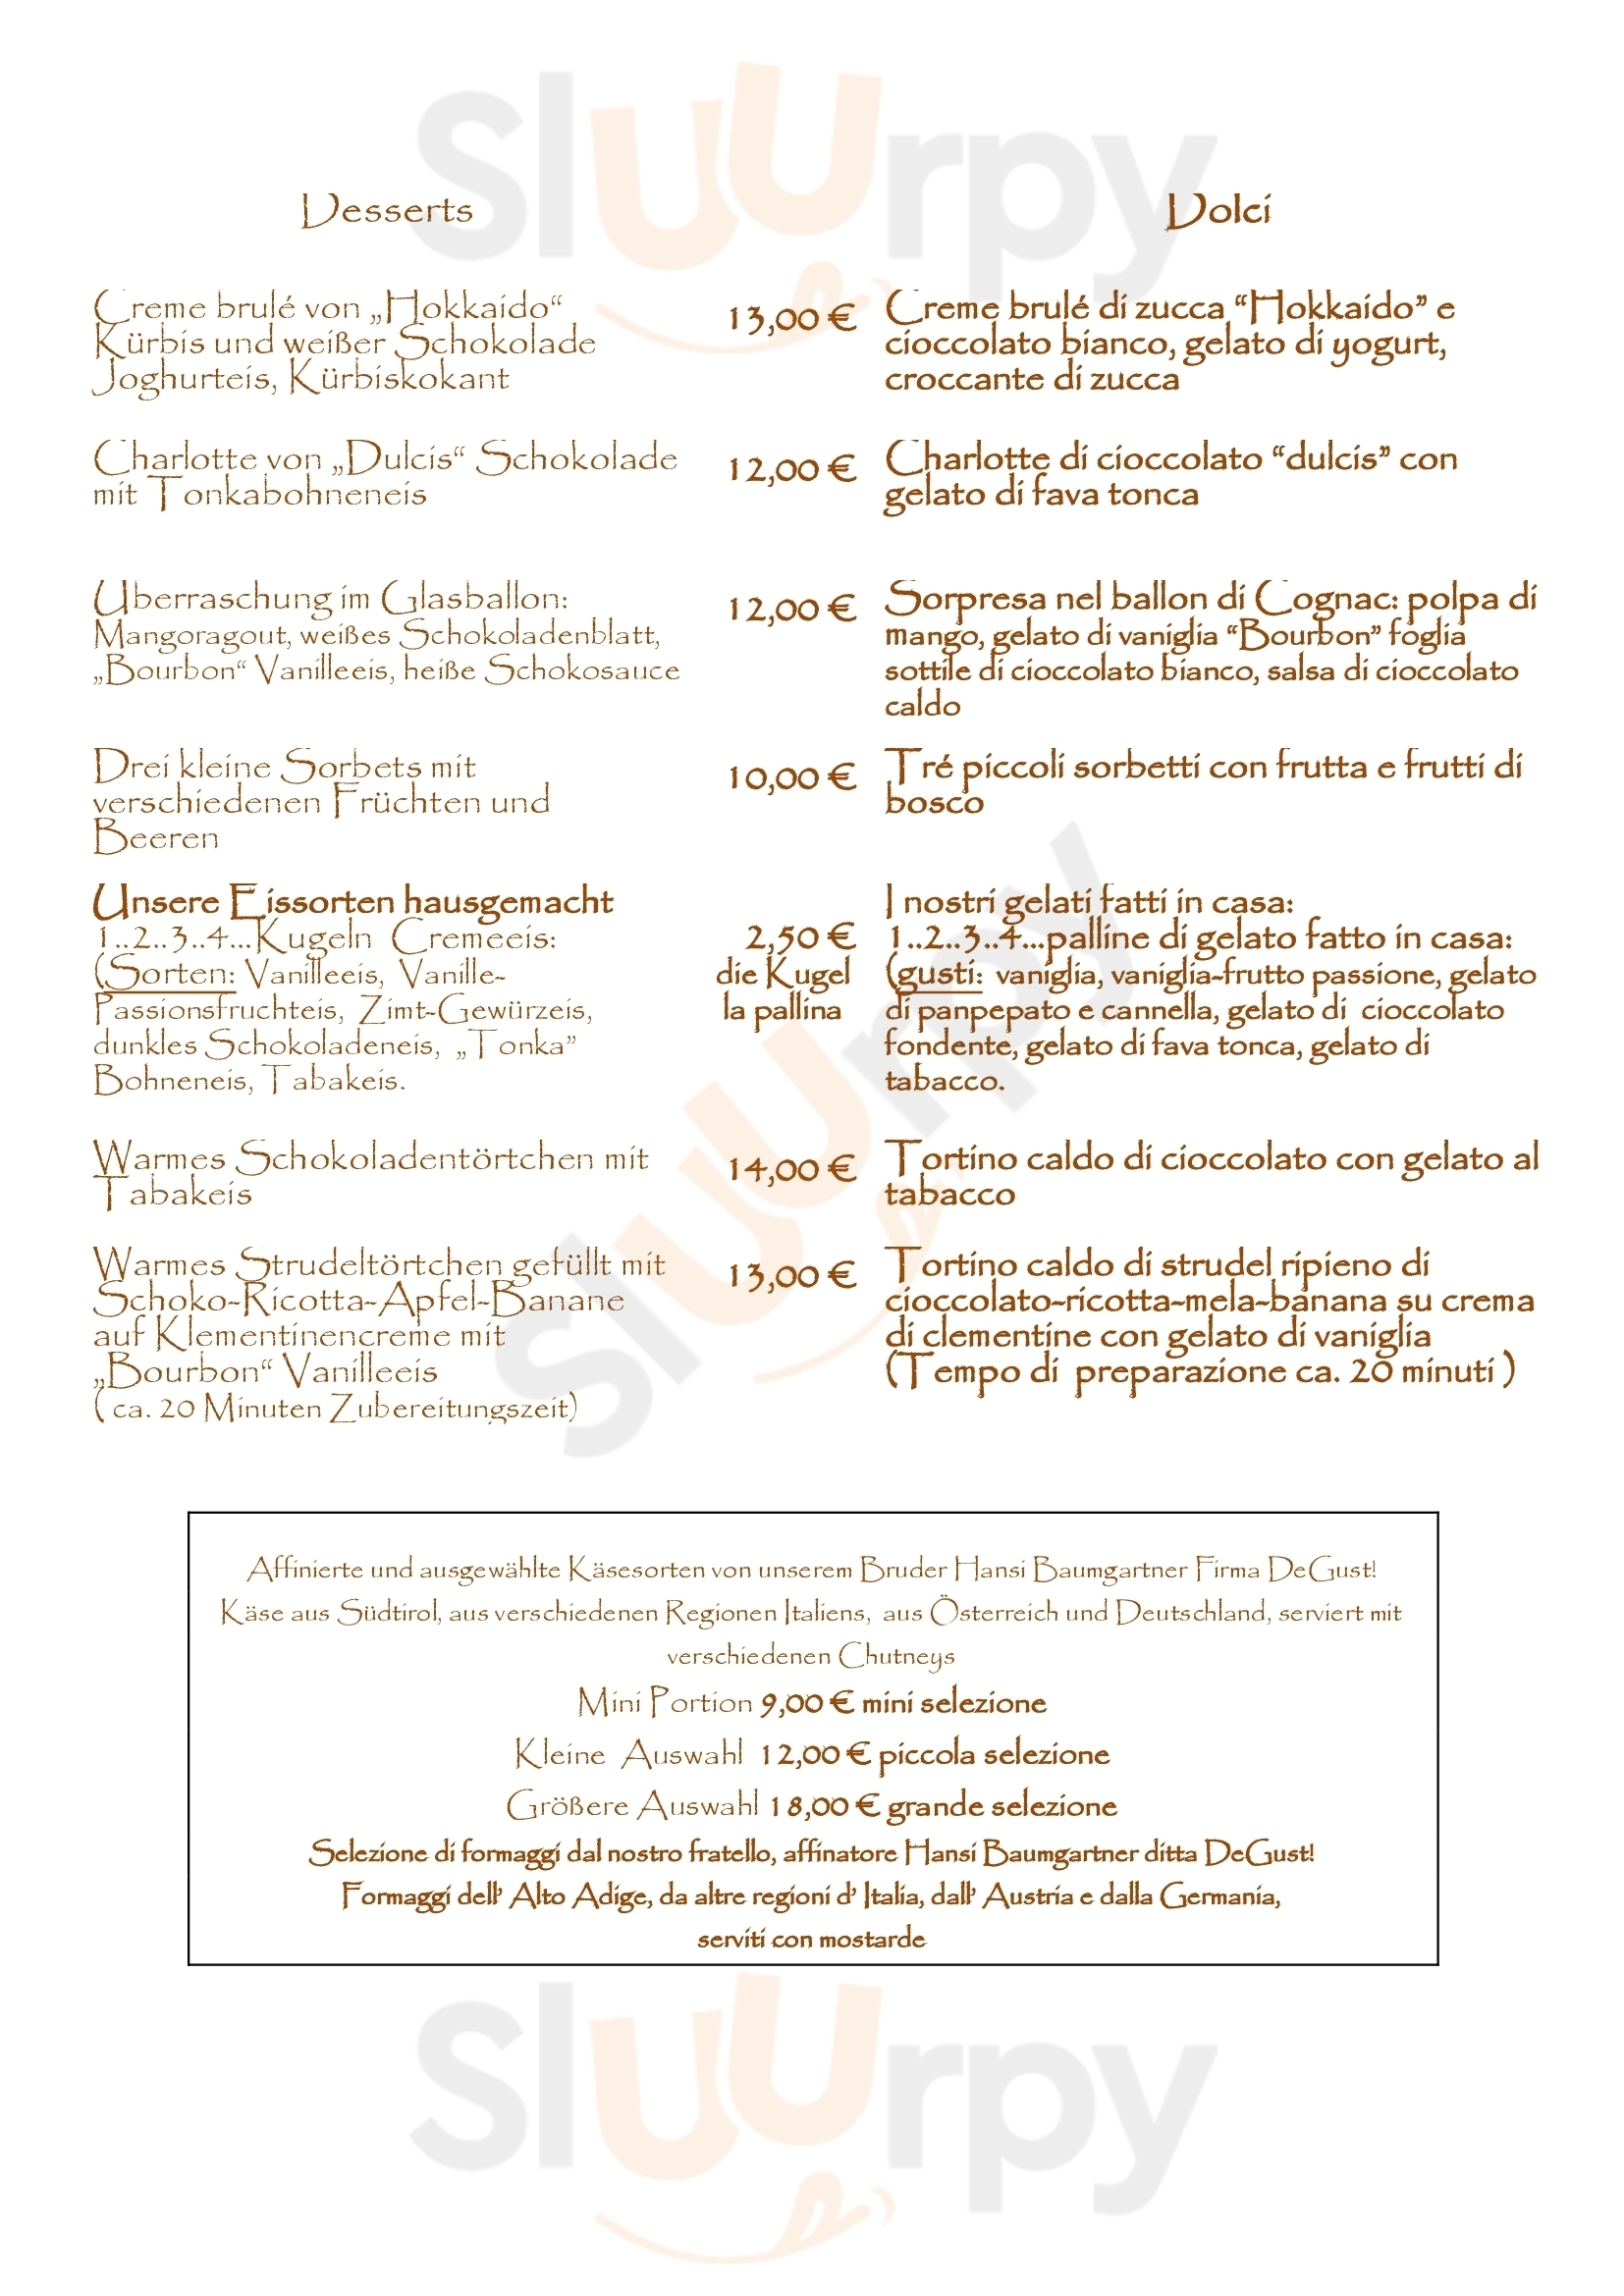 Sluurpy
Desserts
Dolci
Creme brulé von „Hokkaido“
Kürbis und weißer Schokolade
Joghurteis, Kürbiskokant
13,00 €
Creme brulé di zucca “Hokkaido” e
cioccolato bianco, gelato di yogurt,
croccante di zucca
Charlotte von „Dulcis“ Schokolade
mit Tonkabohneneis
12,00 €
Charlotte di cioccolato “dulcis” con
gelato di fava tonca
Uberraschung im Glasballon:
Mangoragout, weißes Schokoladenblatt,
„Bourbon“ Vanilleeis, heiße Schokosauce
12,00 €
Sorpresa nel ballon di Cognac: polpa di
mango, gelato di vaniglia “Bourbon” foglia
sottile di cioccolato bianco, salsa di cioccolato
caldo
Drei kleine Sorbets mit
verschiedenen Früchten und
Beeren
10,00 €
Tré piccoli sorbetti con frutta e frutti di
bosco
Unsere Eissorten hausgemacht
1..2..3..4...Kugeln Cremeeis:
(Sorten: Vanilleeis, Vanille-
Passionsfruchteis, Zimt-Gewürzeis,
dunkles Schokoladeneis, „Tonka”
Bohneneis, Tabakeis.
2,50 €
die Kugel
la pallina
I nostri gelati fatti in casa:
1..2..3..4...palline di gelato fatto in casa:
(gusti: vaniglia, vaniglia-frutto passione, gelato
di panpepato e cannella, gelato di cioccolato
fondente, gelato di fava tonca, gelato di
tabacco.
Warmes Schokoladentörtchen mit
Tabakeis
14,00 €
Tortino caldo di cioccolato con gelato al
tabacco
Warmes Strudeltörtchen gefüllt mit
Schoko-Ricotta-Apfel-Banane
auf Klementinencreme mit
„Bourbon“ Vanilleeis
( ca. 20 Minuten Zubereitungszeit)
13,00 €
Tortino caldo di strudel ripieno di
cioccolato-ricotta-mela-banana su crema
di clementine con gelato di vaniglia
(Tempo di preparazione ca. 20 minuti )
Sluurpy
Affinierte und ausgewählte Käsesorten von unserem Bruder Hansi Baumgartner Firma DeGust!
Käse aus Südtirol, aus verschiedenen Regionen Italiens, aus Österreich und Deutschland, serviert mit
verschiedenen Chutneys
Mini Portion 9,00 € mini selezione
Kleine Auswahl 12,00 € piccola selezione
Größere Auswahl 18,00 € grande selezione
Selezione di formaggi dal nostro fratello, affinatore Hansi Baumgartner ditta DeGust!
Formaggi dell’ Alto Adige, da altre regioni d’ Italia, dall’ Austria e dalla Germania,
serviti con mostarde
Sluurpy